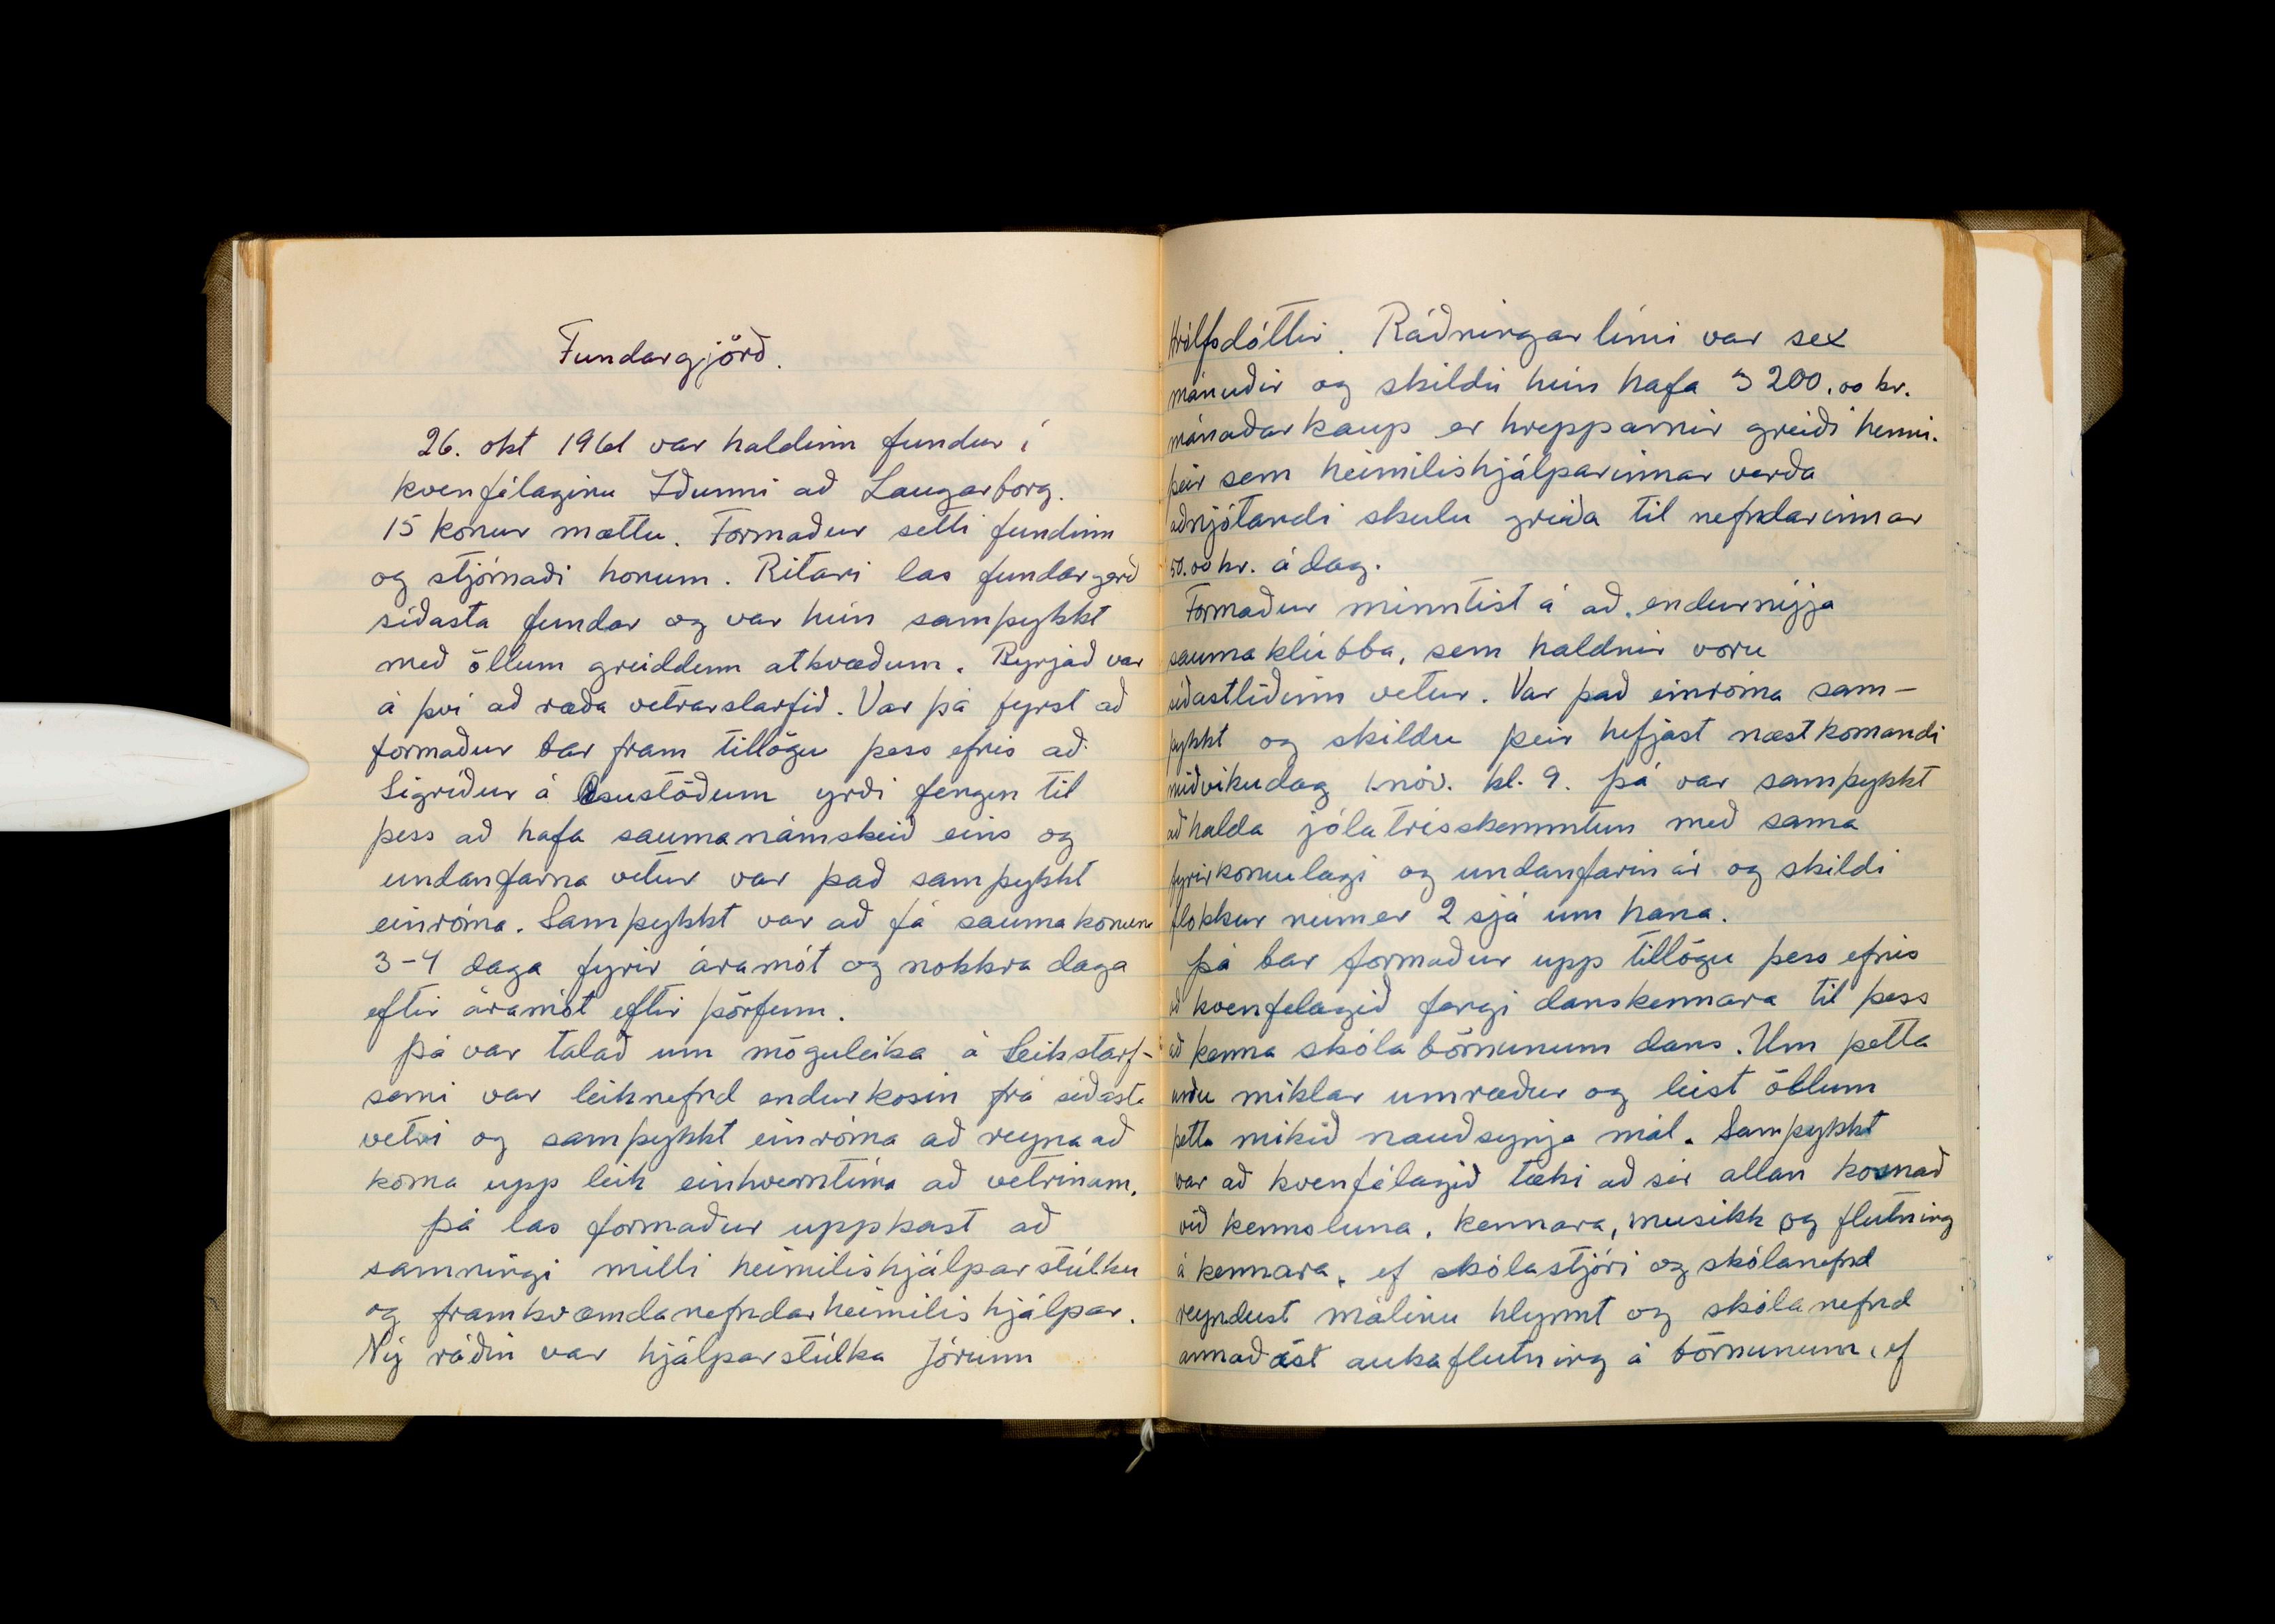 Fundargjörð.
26. okt 1961 var haldinn fundur í
kvenfélaginu Iðunni að Laugarborg.
15 konur mættu. Formaður setti fundinn
og stjórnaði honum. Ritari las fundargerð
síðasta fundar og var hún samþykkt
með öllum greiddum atkvæðum. Byrjað var
á því að ræða vetrarstarfið. Var þá fyrst að
formaður bar fram tillögu þess efnis að
Sigríður á Ásustöðum yrði fengin til
þess að hafa saumanámskeið eins og
undanfarna vetur var það samþykkt
einróma. Samþykkt var að fá saumakonuna
3-4 daga fyrir áramót og nokkra daga
eftir áramót eftir þörfum.
Þá var talað um möguleika á leikstarf-
semi var leiknefnd endurkosin frá síðasta
vetri og samþykkt einróma að reyna að
koma upp leik einhverntíma að vetrinum.
Þá las formaður uppkast að
samningi milli heimilishjálparstúlku
og framkvæmdanefndar heimilishjálpar.
Ný ráðin var hjálparstúlka Jórunn
Hrólfsdóttir. Ráðningartími var sex
mánuðir og skildi hún hafa 3200.00 kr.
mánaðarkaup er hrepparnir greiði henni.
Þeir sem heimilishjálparinnar verða
aðnjótandi skulu greiða til nefndarinnar
50.00 kr. á dag.
Formaður minntist á að endurnýja
saumaklúbba, sem haldnir voru
síðastliðinn vetur. Var það einróma sam-
þykkt og skildu þeir hefjast næstkomandi
miðvikudag 1. nóv. kl. 9. Þá var samþykkt
að halda jólatrésskemmtun með sama
fyrirkomulagi og undanfarin ár og skildi
flokkur númer 2 sjá um hana.
Þá bar formaður upp tillögu þess efnis
að kvenfelagið fengi danskennara til þess
að kenna skólabörnunum dans. Um þetta
urðu miklar umræður og leist öllum
þetta mikið nauðsynja mál. Samþykkt
var að kvenfélagið tæki að sér allan kosnað
við kennsluna, kennara, musikk og flutning
á kennara, ef skólastjóri og skólanefnd
reyndust málinu hlynnt og skólanefnd
annaðist aukaflutning á börnunum, ef